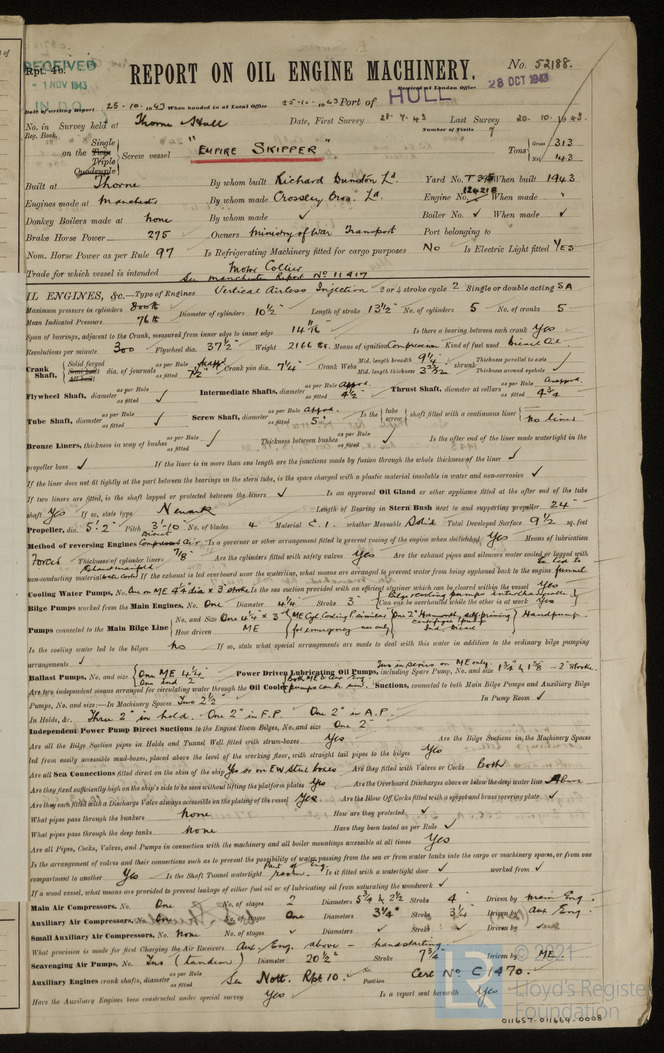 Rpt. 4b.
RECEIVED
- 1 NOV 1943
IN D.O.
REPORT ON OIL ENGINE MACHINERY.
No. 52188.
Received at London Office 28 OCT 1943
Date of writing Report 25-10-1943 When handed in at Local Office 25-10-1943 Port of HULL
No. in Survey held at Thorne & Hull Date, First Survey 28.7.43 Last Survey 20.10.1943.
Reg. Book. Number of Visits 7
on the Single Twin Triple Quadruple Screw vessel "EMPIRE SKIPPER" Tons Gross 313 Net 143
Built at Thorne By whom built Richard Dunston Ld Yard No. When built 1943
Engines made at Manchester By whom made Crossley Bros. Ld. Engine No. 124218 When made "
Donkey Boilers made at None By whom made ✓ Boiler No. ✓ When made ✓
Brake Horse Power 275 Owners Ministry of War Transport Port belonging to
Nom. Horse Power as per Rule 97 Is Refrigerating Machinery fitted for cargo purposes No Is Electric Light fitted Yes
Trade for which vessel is intended Motor Collier
See Manchester Report No 11417
OIL ENGINES, &c.—Type of Engines Vertical Airless Injection 2 or 4 stroke cycle 2 Single or double acting SA
Maximum pressure in cylinders 800 lb Diameter of cylinders 10½" Length of stroke 13½" No. of cylinders 5 No. of cranks 5
Mean Indicated Pressure 76 lb
Span of bearings, adjacent to the Crank, measured from inner edge to inner edge Is there a bearing between each crank Yes
Revolutions per minute 300 Flywheel dia. 37½" Weight 2166 lb. Means of ignition Compression Kind of fuel used Diesel Oil
Crank Shaft, Solid forged Semi built All built dia. of journals as per Rule as fitted 7½" Crank pin dia. 7¼" Crank Webs Mid. length breadth 9¼" Mid. length thickness shrunk Thickness parallel to axis Thickness around eyehole
Flywheel Shaft, diameter as per Rule as fitted ✓ Intermediate Shafts, diameter as per Rule Approd. as fitted 4½" Thrust Shaft, diameter at collars as per Rule as fitted 4¾
Tube Shaft, diameter as per Rule as fitted ✓ Screw Shaft, diameter as per Rule Approd. as fitted 5" Is the tube screw shaft fitted with a continuous liner No liner
Bronze Liners, thickness in way of bushes as per Rule as fitted ✓ Thickness between bushes as per Rule as fitted ✓ Is the after end of the liner made watertight in the
propeller boss ✓ If the liner is in more than one length are the junctions made by fusion through the whole thickness of the liner ✓
If the liner does not fit tightly at the part between the bearings in the stern tube, is the space charged with a plastic material insoluble in water and non-corrosive ✓
If two liners are fitted, is the shaft lapped or protected between the liners ✓ Is an approved Oil Gland or other appliance fitted at the after end of the tube
shaft Yes If so, state type Newark Length of Bearing in Stern Bush next to and supporting propeller 24"
Propeller, dia. 5'2" Pitch 3'-10 No. of blades 4 Material C.I. whether Moveable Solid Total Developed Surface 9½ sq. feet
Method of reversing Engines Direct Compressed Air Is a governor or other arrangement fitted to prevent racing of the engine when declutched Yes Means of lubrication
Forced Thickness of cylinder liners 7/8" Are the cylinders fitted with safety valves Yes Are the exhaust pipes and silencers water cooled or lagged with
non-conducting material If the exhaust is led overboard near the waterline, what means are arranged to prevent water from being syphoned back to the engine be led to funnel
Cooling Water Pumps, No. One on ME 4¼ dia x 3 stroke Is the sea suction provided with an efficient strainer which can be cleared within the vessel Yes
Bilge Pumps worked from the Main Engines, No. One Diameter 4¼ Stroke 3 Can one be overhauled while the other is at work Yes
Pumps connected to the Main Bilge Line No. and Size One 4¼ x 3" How driven ME Handpump
Is the cooling water led to the bilges No If so, state what special arrangements are made to deal with this water in addition to the ordinary bilge pumping
arrangements ✓
Ballast Pumps, No. and size One ME 4¼ Power Driven Lubricating Oil Pumps, including Spare Pump, No. and size Two in series on ME only 2" Stroke.
Are two independent means arranged for circulating water through the Oil Cooler Suctions, connected to both Main Bilge Pumps and Auxiliary Bilge
Pumps, No. and size:—In Machinery Spaces Two 2½" In Pump Room ✓
In Holds, &c. Three 2" in hold. One 2" in F.P. One 2" in A.P.
Independent Power Pump Direct Suctions to the Engine Room Bilges, No. and size One 2"
Are all the Bilge Suction pipes in Holds and Tunnel Well fitted with strum-boxes Yes Are the Bilge Suctions in the Machinery Spaces
led from easily accessible mud-boxes, placed above the level of the working floor, with straight tail pipes to the bilges Yes
Are all Sea Connections fitted direct on the skin of the ship Yes or on EW steel boxes Are they fitted with Valves or Cocks Both
Are they fixed sufficiently high on the ship's side to be seen without lifting the platform plates Yes Are the Overboard Discharges above or below the deep water line Above
Are they each fitted with a Discharge Valve always accessible on the plating of the vessel Yes Are the Blow Off Cocks fitted with a spigot and brass covering plate ✓
What pipes pass through the bunkers None How are they protected ✓
What pipes pass through the deep tanks None Have they been tested as per Rule ✓
Are all Pipes, Cocks, Valves, and Pumps in connection with the machinery and all boiler mountings accessible at all times Yes
Is the arrangement of valves and their connections such as to prevent the possibility of water passing from the sea or from water tanks into the cargo or machinery spaces, or from one
compartment to another Yes Is the Shaft Tunnel watertight Part of Eng room. Is it fitted with a watertight door ✓ worked from ✓
If a wood vessel, what means are provided to prevent leakage of either fuel oil or of lubricating oil from saturating the woodwork ✓
Main Air Compressors, No. One No. of stages 2 Diameters 5¾ & 2½ Stroke 4" Driven by Main Eng.
Auxiliary Air Compressors, No. One No. of stages One Diameters 3¼" Stroke 3¼ Driven by Aux Eng.
Small Auxiliary Air Compressors, No. None No. of stages ✓ Diameters ✓ Stroke ✓ Driven by
What provision is made for first Charging the Air Receivers Aux. Eng. above - handstarting.
Scavenging Air Pumps, No. Two (tandem) Diameter 20½" Stroke 7¾ Driven by ME.
Auxiliary Engines crank shafts, diameter as per Rule as fitted See Nott. Rpt 10. No. Position Cert No C1470.
Have the Auxiliary Engines been constructed under special survey Yes Is a report sent herewith Yes
© 2021
Lloyd's Register
Foundation
011657-011664-0008